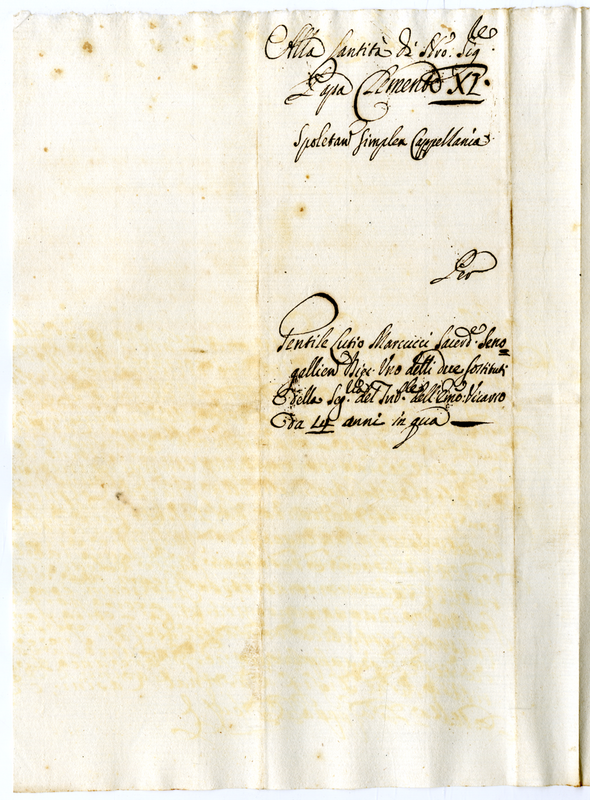 Alla Santità di Nro: Sig.re
Papa Clemente XI.
Spoletan Simplex Cappellania
Per
Gentile Lutio Marcucci Sacerd.e Seno=
gallien Dix. Uno delli due sostituti
della Seg.ria del Trib.le dell'Emo: Vicario
da anni in qua